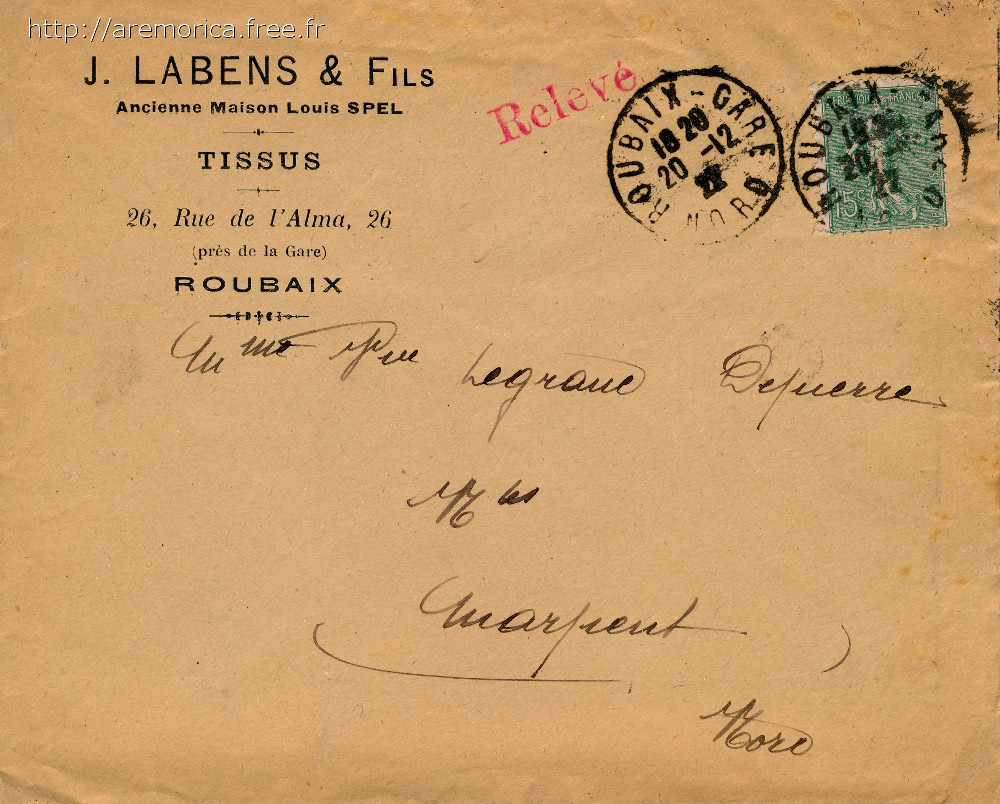 http://aremorica.free.fr
J. LABENS & FILS
Ancienne Maison Louis SPEL
TISSUS
26, Rue de l'Alma, 26
(près de la Gare)
ROUBAIX
Relevé
ROUBAIX-GARE
18 20
20 -12
22
NORD
ROUBAIX
18
20
22
15c
Mme
Legrand Defuerre
Mds
Marpent
Nord